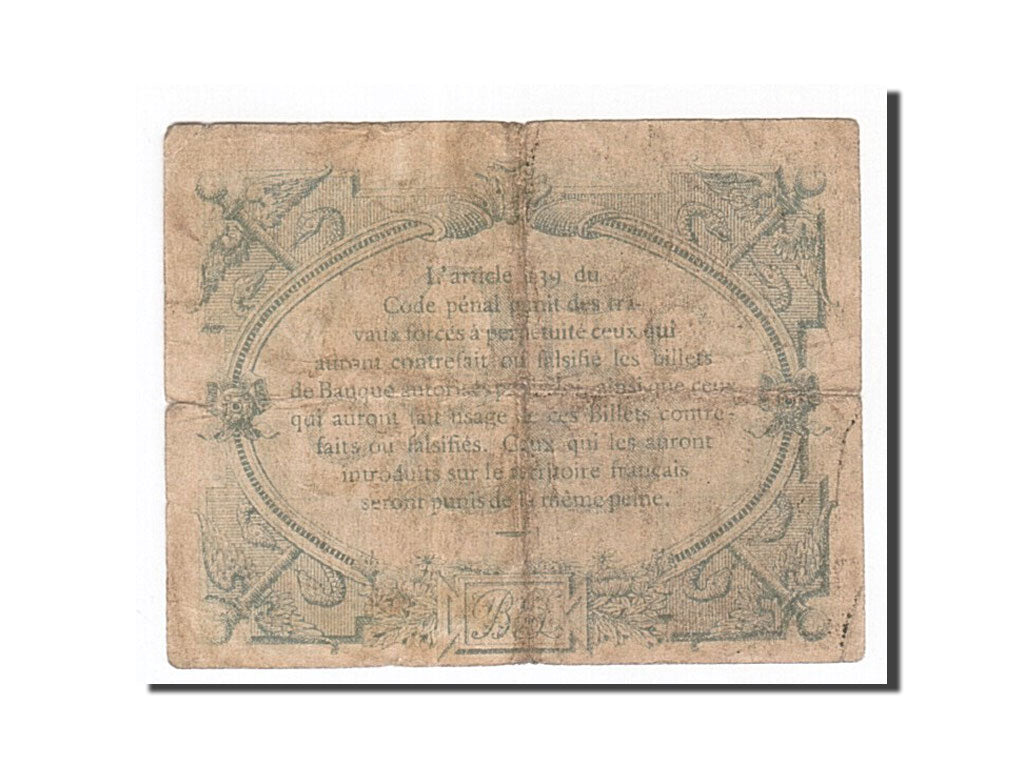 L'article 139 du
Code pénal punit des tra-
vaux forcés à perpétuité ceux qui
auront contrefait ou falsifié les billets
de Banque autorisés par la loi, ainsi que ceux
qui auront fait usage de ces Billets contre-
faits ou falsifiés. Ceux qui les auront
introduits sur le territoire français
seront punis de la même peine.